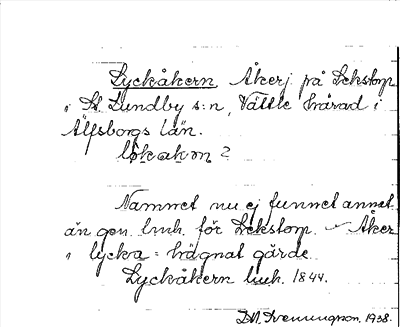 Lyckåkern, Åkerj på Lekstorp
i St. Lundby s:n, Vättle härad i
Älfsborgs län.
lökakɐn?
Namnet nu ej funnet annat
än gen. lmh. för Lekstorp. Åker
i lycka = hägnat gärde
Lyckåkern lmh. 1844.
D.N. Svenningson. 1938.